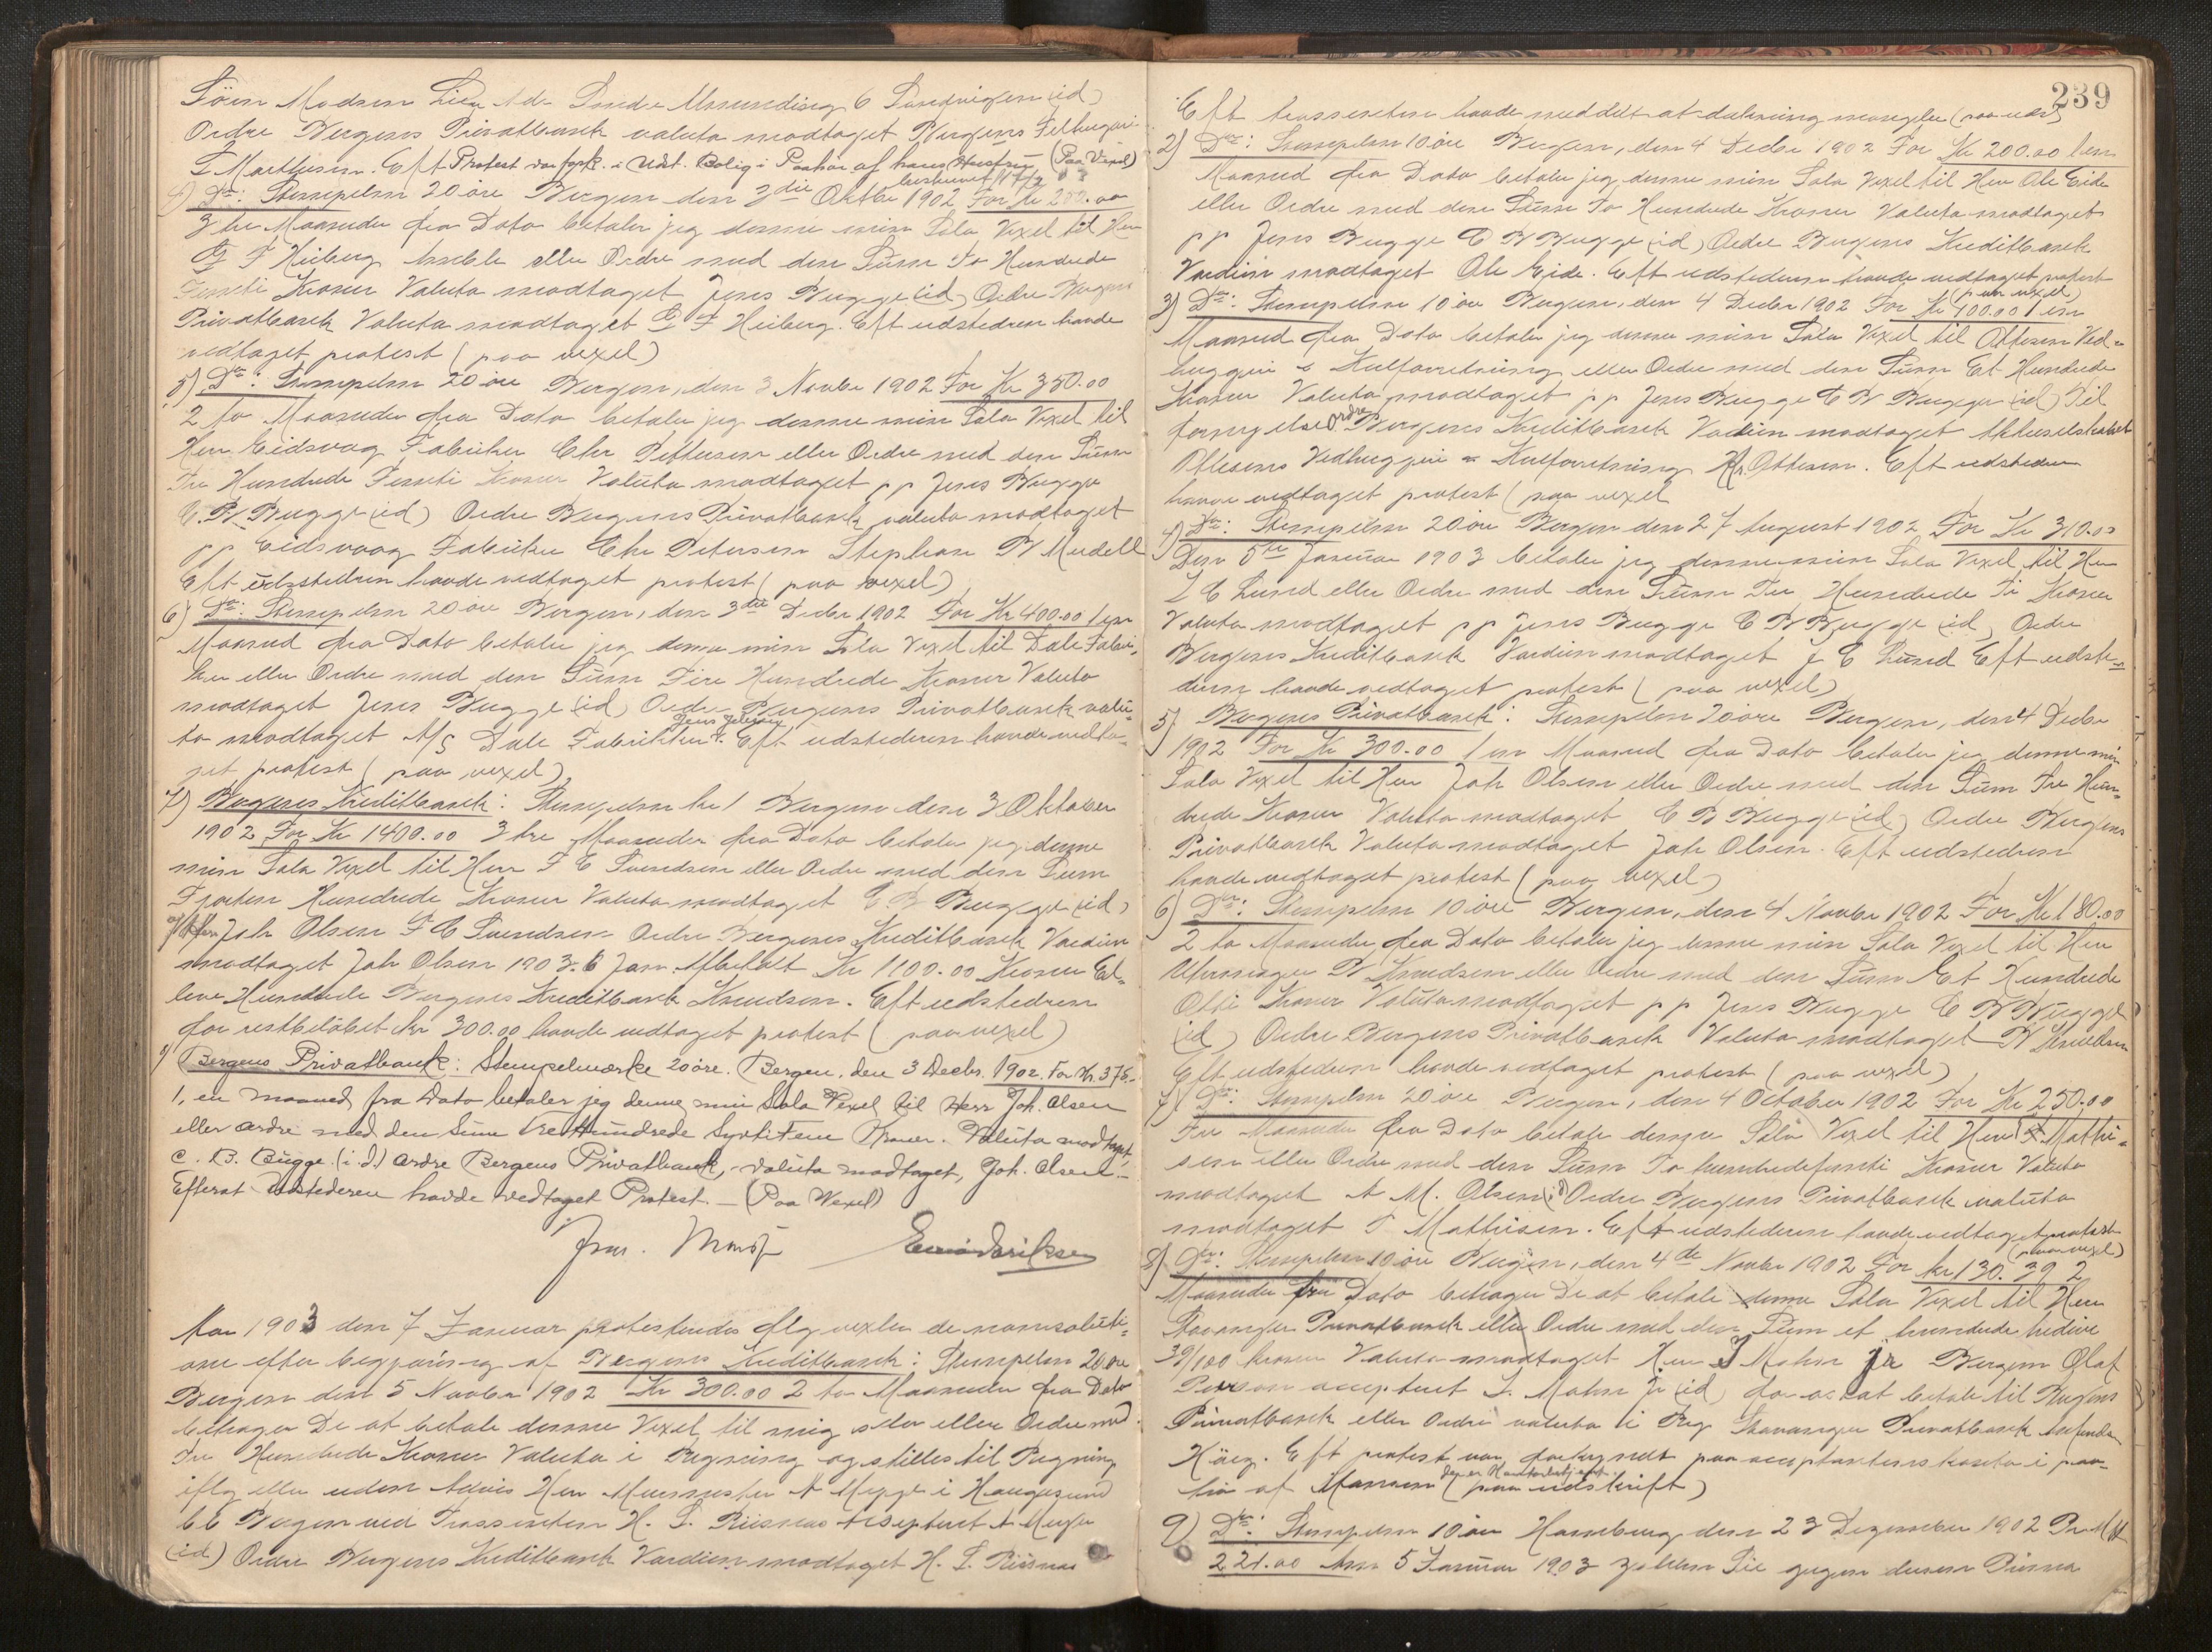 Ordre Bergens Privatbank valuta modtaget Bergens
Eft Protest var fork. i Udst. Bolig i Paahør af hans Hustru (Paa Vexel)
4) Do: Stempelm 20 öre Bergen den 3die Oktbr 1902 For Kr 250.00
3 tre Maaneder fra Dato betaler jeg denne min Sola Vexel til Herr
G F Heiberg eller Ordre med den Sum To Hundrede
Femti Kroner Valuta modtaget Jens Bugge (id) Ordre Bergens
Privatbank Valuta modtaget G F Heiberg. Eft udstederen havde
vedtaget protest (paa vexel)
5) Do: Stempelm 20 öre Bergen, den 3 Novbr 1902 For Kr 350.00
2 to Maaneder fra Dato betaler jeg denne min Sola Vexel til
Herr Eidsvaag Fabrikker Chr Pettersen eller Ordre med den Sum
Tre Hundrede Femti Kroner Valuta modtaget pp Jens Bugge
C. B. Bugge (id) Ordre Bergens Privatbank valuta modtaget
pp Eidsvaag Fabrikker Chr Petersen Stephan
Eft udstederen havde vedtaget protest (paa vexel)
6) Do: Stempelm 20 öre Bergen, den 3die Decbr 1902 For Kr 400.00 1 en
Maaned fra Dato betaler jeg denne min Sola Vexel til Dale Fabri-
ker eller Ordre med den Sum Fire Hundrede Kroner Valuta
modtaget Jens Bugge (id) Ordre Bergens Privatbank valu-
ta modtaget A/S Dale Fabrikker Eft udstederen havde vedta-
get protest (paa vexel)
7) Bergens Kreditbank: Stempelm kr 1 Bergen den 3 Oktober
1902 For Kr 1400.00 3 tre Maaneder fra Dato betaler jeg denne
min Sola Vexel til Herr F E Svendsen eller Ordre med den Sum
Fjorten Hundrede Kroner Valuta modtaget C B Bugge (id)
Joh Olsen F E Svendsen Ordre Bergens Kreditbank Værdien
modtaget Joh Olsen 1903. 6 Jan. Afbetalt Kr 1100.00 Kroner El-
leve Hundrede Bergens Kreditbank Knudsen. Eft udstederen
for restbelöbet kr 300.00 havde vedtaget protest (paa vexel)
Bergens Privatbank: Stempelmærke 20 öre. Bergen, den 3 Decbr. 1902. For Kr. 376.-
1, en Maaned fra Dato betaler jeg denne min Sola Vexel til Herr Joh. Olsen
eller ordre med den Sum Trehundrede Syttifem Kroner. Valuta modtaget
C. B. Bugge. (i.d.) ordre Bergens Privatbank, valuta modtaget, Joh. Olsen.-
Efterat Udstederen havde vedtaget Protest. - (Paa Vexel)
Aar 1903 den 7 Januar protesteredes flg vexler de non soluti-
one efter begjæring af Bergens Kreditbank: Stempelm 20 öre
Bergen den 5 Novbr 1902 Kr 300.00 2 to Maaneder fra Dato
behager De at betale denne Vexel til mig selv eller Ordre med
Tre Hundrede Kroner Valuta i Regning og stilles til Regning
iflg eller uden Advis Herr Murmester A i Haugesund
Bergen ved Trassenten H. S. Riisnæs accepteret A
(id) Ordre Bergens Kreditbank Værdien modtaget H. S. Riisnæs
239
Eft trassenten havde meddelt at dækning mangler (paa udst)
2) Do: Stempelm 10 öre Bergen, den 4 Decbr 1902 For Kr 200.00 1 en
Maaned fra Dato betaler jeg denne min Sola Vexel til Herr Ole Eide
eller Ordre med den Sum To Hundrede Kroner Valuta modtaget
pp Jens Bugge C B Bugge (id) Ordre Bergens Kreditbank
Værdien modtaget Ole Eide. Eft udstederen havde vedtaget protest
(paa vexel)
3) Do: Stempelm 10 öre Bergen, den 4 Decbr 1902 For Kr 100.00 1 en
Maaned fra Dato betaler jeg denne min Sola Vexel til Ottesen Ved-
huggeri & Kulforretning eller Ordre med den Sum Et Hundrede
Kroner Valuta modtaget pp Jens Bugge C B Bugge (id) Til
fornyelse ordre Bergens Kreditbank Værdien modtaget Aktieselskabet
Ottesens Vedhuggeri & Kulforretning Ottesen. Eft udstederen
havde vedtaget protest (paa vexel
4) Do: Stempelm 20 öre Bergen den 27 August 1902 For Kr 310.00
Den 5te Januar 1903 betaler jeg denne min Sola Vexel til Herr
J C Lund eller Ordre med den Sum Tre Hundrede Ti Kroner
Valuta modtaget pp Jens Bugge C B Bugge (id) Ordre
Bergens Kreditbank Værdien modtaget J C Lund Eft udste-
deren havde vedtaget protest (paa vexel)
5) Bergens Privatbank: Stempelm 20 öre Bergen, den 4 Decbr
1902 For Kr 300.00 1 en Maaned fra Dato betaler jeg denne min
Sola Vexel til Herr Joh Olsen eller Ordre med den Sum Tre Hun-
drede Kroner Valuta modtaget C B Bugge (id) Ordre Bergens
Privatbank Valuta modtaget Joh Olsen. Eft udstederen
havde vedtaget protest (paa vexel)
6) Do: Stempelm 10 öre Bergen, den 4 Novbr 1902 For Kr 180.00
2 to Maaneder fra Dato betaler jeg denne min Sola Vexel til Herr
Uhrmager B Knudsen eller Ordre med den Sum Et Hundrede
Otti Kroner Valuta modtaget pp Jens Bugge C B Bugge
(id) Ordre Bergens Privatbank Valuta modtaget B Knudsen
Eft udstederen havde vedtaget protest (paa vexel)
7) Do: Stempelm 20 öre Bergen, den 4 October 1902 For Kr 250.00
Tre Maaneder fra Dato betale denne Sola Vexel til Herr T. Mathi-
sen eller Ordre med den Sum To hundredefemti Kroner Valuta
modtaget A M. Olsen (id) Ordre Bergens Privatbank valuta
modtaget T Mathisen. Eft udstederen havde vedtaget protest
(paa vexel)
8) Do: Stempelm 10 öre Bergen, den 4de Novbr 1902 For kr 130.39 2
Maaneder fra Dato behager De at betale denne Sola Vexel til Herr
Stavanger Privatbank eller Ordre med den Sum et hundrede tredive
39/100 kroner Valuta modtaget Herr J Mohn jr Bergen Olaf
accepteret J. Mohn Jr (id) for os at betale til Bergens
Privatbank eller Ordre valuta i Reg Stavanger Privatbank
Eft protest var forkyndt paa acceptantens kontor i paa-
hör af (paa udskrift)
9) Do: Stempelm 10 öre Hamburg den 23 Dezember 1902 Pr M
221.00 Am 5 Januar 1903 zahlen Sie gegen diesen Prima